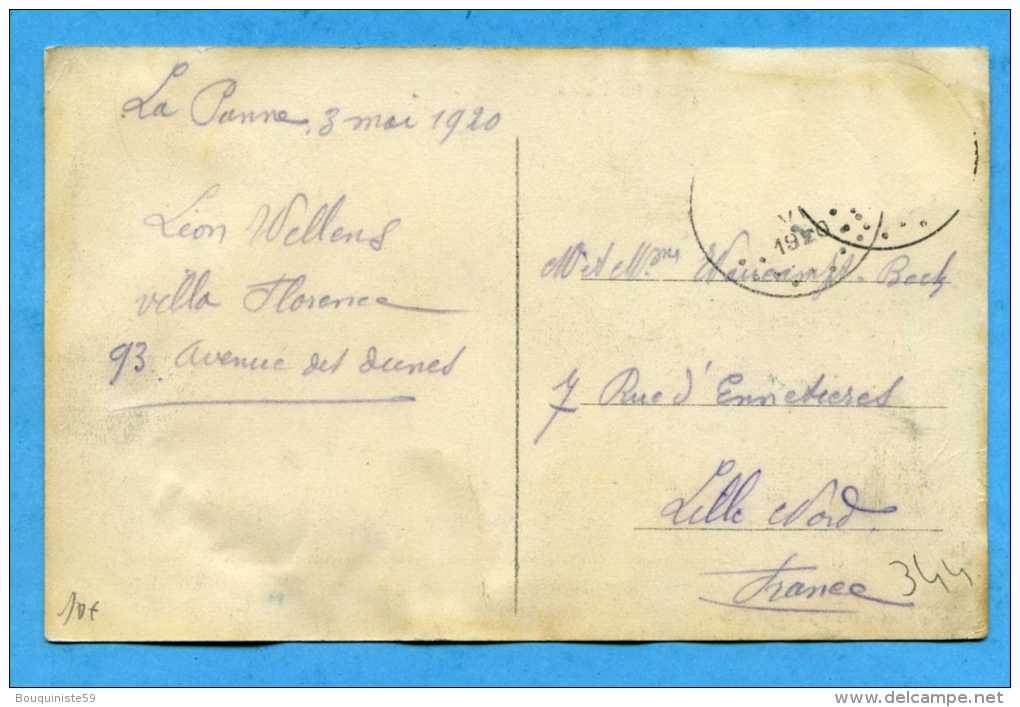 La Panne, 3 mai 1920
Léon Wellens
villa Florence
93. avenue des dunes
V
1920
Mr et Mme Beck
7 Rue d'Ennetieres
Lille Nord.
France
344
10€
Bouquiniste59
www.delcampe.net